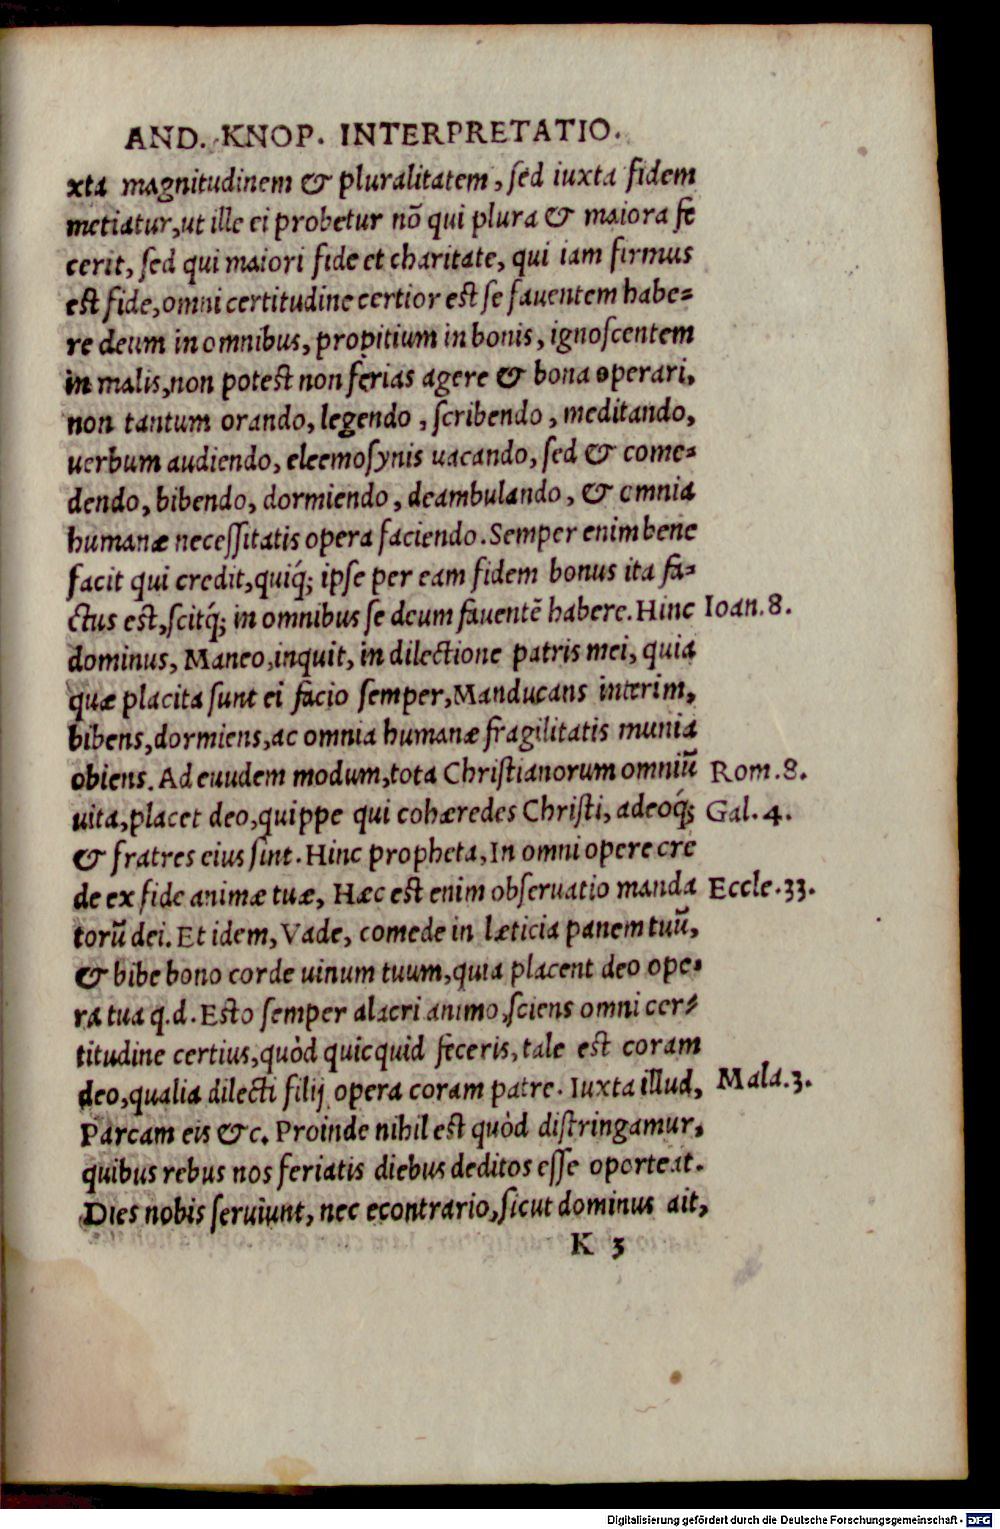 AND. KNOP. INTERPRETATIO.
xta magnitudinem & pluralitatem, sed iuxta fidem
metiatur, ut ille ei probetur nō qui plura & maiora fe
cerit, sed qui maiori fide et charitate, qui iam firmus
est fide, omni certitudine certior est se fauentem habe-
re deum in omnibus, propitium in bonis, ignoscentem
in malis, non potest non ferias agere & bona operari,
non tantum orando, legendo, scribendo, meditando,
uerbum audiendo, eleemosynis uacando, sed & come-
dendo, bibendo, dormiendo, deambulando, & omnia
humanæ necessitatis opera faciendo. Semper enim bene
facit qui credit, quiq́; ipse per eam fidem bonus ita fa-
ctus est, scitq́; in omnibus se deum fauentē habere. Hinc Ioan. 8.
dominus, Maneo, inquit, in dilectione patris mei, quia
quæ placita sunt ei facio semper, Manducans interim,
bibens, dormiens, ac omnia humanæ fragilitatis munia
obiens. Ad euudem modum, tota Christianorum omniū Rom. 8.
uita, placet deo, quippe qui cohæredes Christi, adeoq́; Gal. 4.
& fratres eius sint. Hinc propheta, In omni opere cre
de ex fide animæ tuæ, Hæc est enim obseruatio manda Eccle. 33.
torū dei. Et idem, Vade, comede in læticia panem tuū,
& bibe bono corde uinum tuum, quia placent deo ope-
ra tua q.d. Esto semper alacri animo, sciens omni cer-
titudine certius, quòd quicquid feceris, tale est coram
deo, qualia dilecti filij opera coram patre. Iuxta illud, Mala. 3.
Parcam eis &c. Proinde nihil est quòd distringamur,
quibus rebus nos feriatis diebus deditos esse oporteat.
Dies nobis seruiunt, nec econtrario, sicut dominus ait,
K 3
Digitalisierung gefördert durch die Deutsche Forschungsgemeinschaft - DFG